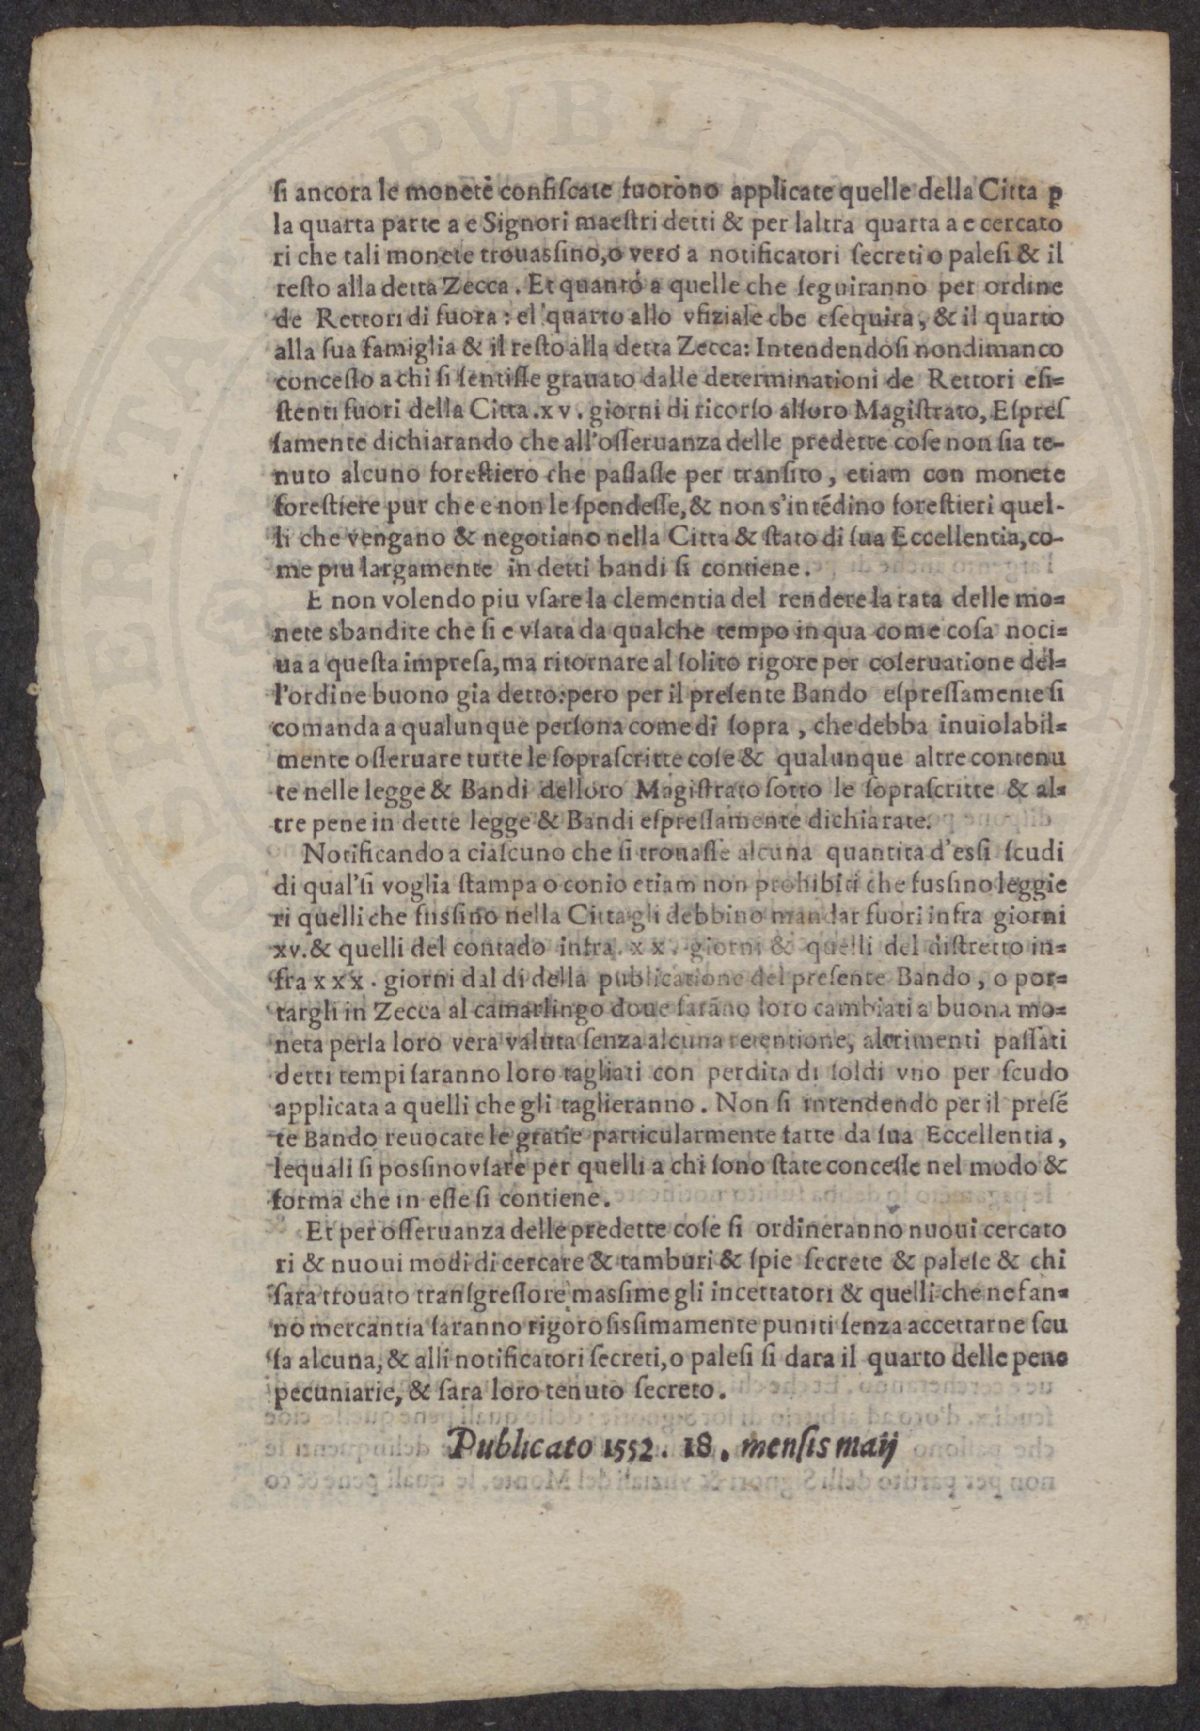 si ancora le monete confiscate fuorono applicate quelle della Citta ꝑ
la quarta parte a e Signori maeſtri detti & per laltra quarta a e cercato
ri che tali monete trouaſsino, o vero a notificatori ſecreti o paleſi & il
reſto alla detta Zecca. Et quanto a quelle che ſeguiranno per ordine
de Rettori di fuora: el quarto allo vfiziale che eſequira, & il quarto
alla ſua famiglia & il reſto alla detta Zecca: Intendendoſi nondimanco
conceſſo a chi ſi ſentiſſe grauato dalle determinationi de Rettori eſi-
ſtenti fuori della Citta .xv. giorni di ricorſo alloro Magiſtrato, Eſpreſ
ſamente dichiarando che all'oſſeruanza delle predette coſe non ſia te-
nuto alcuno foreſtiero che paſſaſſe per tranſito, etiam con monete
foreſtiere pur che e non le ſpendeſſe, & non s'intēdino foreſtieri quel-
li che vengano & negotiano nella Citta & ſtato di ſua Eccellentia, co-
me piu largamente in detti bandi ſi contiene.
E non volendo piu vſare la clementia del rendere la rata delle mo-
nete sbandite che ſi e vſata da qualche tempo in qua come coſa noci-
ua a queſta impreſa, ma ritornare al ſolito rigore per coſeruatione del-
l'ordine buono gia detto: pero per il preſente Bando eſpreſſamente ſi
comanda a qualunque perſona come di ſopra, che debba inuiolabil-
mente oſſeruare tutte le ſopraſcritte coſe & qualunque altre contenu
te nelle legge & Bandi delloro Magiſtrato ſotto le ſopraſcritte & al-
tre pene in dette legge & Bandi eſpreſſamente dichiarate.
Notificando a ciaſcuno che ſi trouaſſe alcuna quantita d'eſſi ſcudi
di qual'ſi voglia ſtampa o conio etiam non prohibiti che fuſſino leggie
ri quelli che fuſſino nella Citta gli debbino mandar fuori infra giorni
xv. & quelli del contado infra .xx. giorni & quelli del diſtretto in-
fra xxx. giorni dal di della publicatione del preſente Bando, o por-
targli in Zecca al camarlingo doue ſarāno loro cambiati a buona mo-
neta perla loro vera valuta ſenza alcuna retentione, altrimenti paſſati
detti tempi ſaranno loro tagliati con perdita di ſoldi vno per ſcudo
applicata a quelli che gli taglieranno. Non ſi intendendo per il preſē
te Bando reuocate le gratie particularmente fatte da ſua Eccellentia,
lequali ſi poſsino vſare per quelli a chi ſono ſtate conceſſe nel modo &
forma che in eſſe ſi contiene.
Et per oſſeruanza delle predette coſe ſi ordineranno nuoui cercato
ri & nuoui modi di cercare & tamburi & ſpie ſecrete & paleſe & chi
ſara trouato tranſgreſſore maſsime gli incettatori & quelli che ne fan-
no mercantia ſaranno rigoroſiſsimamente puniti ſenza accettarne ſcu
ſa alcuna, & alli notificatori ſecreti, o paleſi ſi dara il quarto delle pene
pecuniarie, & ſara loro tenuto ſecreto.
Publicato 1552. 18. menſis maij